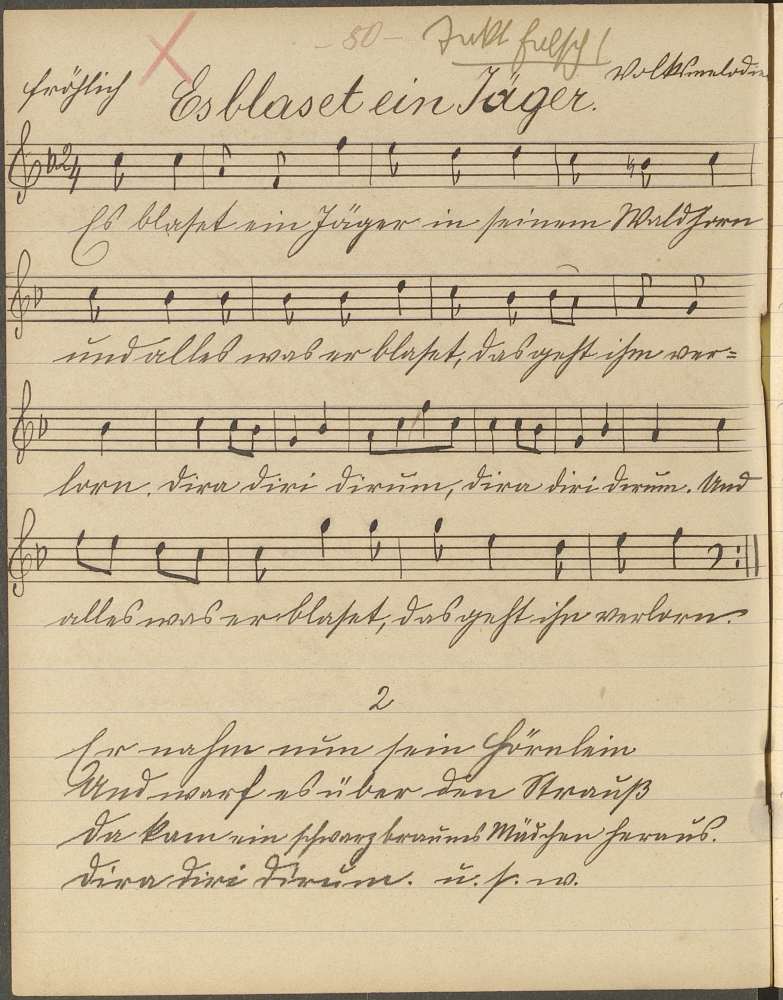 - 80 - Takt falsch!
fröhlich Es blaset ein Jäger. Volksmelodie
2/4
Es blaset ein Jäger in seinem Waldhorn
und alles was er blaset, das geht ihm ver=
lorn. Dira diri dirum, dira diri dirum. Und
alles was er blaset, das geht ihn verlorn.
2
Er nahm nun sein Hörnlein
Und warf es über den Strauß
Da kam ein schwarzbrauns Mädchen heraus.
Dira diri dirum. u. s. w.